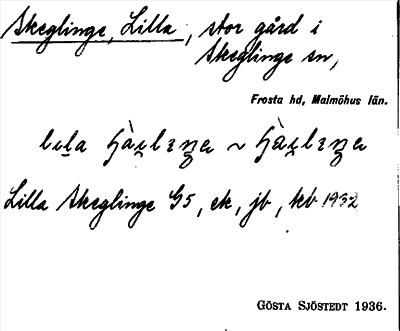 Skeglinge, Lilla, stor gård i
Skeglinge sn,
Frosta hd, Malmöhus län.
Lilla Skeglinge G5, ek, jb, kb 1932
GÖSTA SJÖSTEDT 1936.